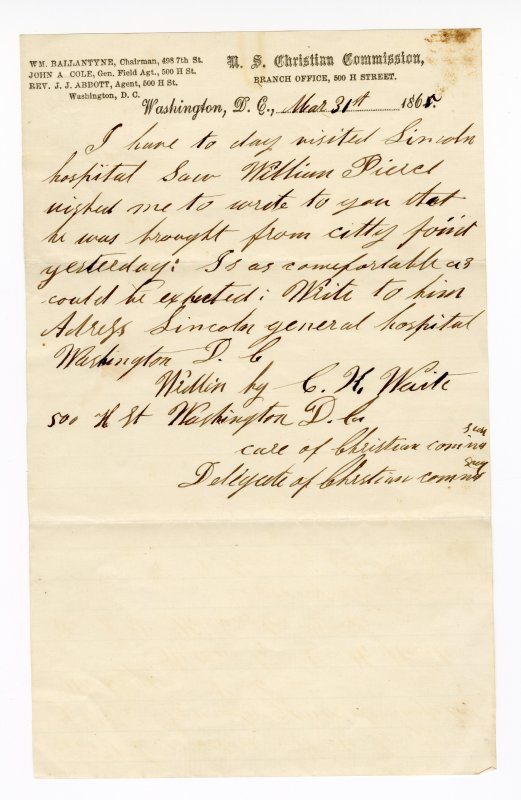 WM. BALLANTYNE, Chairman, 498 7th St.
JOHN A. COLE, Gen. Field Agt., 500 H St.
REV. J. J. ABBOTT, Agent, 500 H St.
Washington, D. C.
U. S. Christian Commission,
BRANCH OFFICE, 500 H STREET.
Washington, D. C., Mar 31st 1865.
I have to day visited Lincoln
hospital Saw William Pierce
wished me to write to you that
he was brought from citty point
yesterday: Is as comefortable as
could be expected: Write to him
Adress Lincoln general hospital
Washington D. C
Written by C. K. Waite
500 H St Washington D. C.
care of Christian
Delegate of Chrstian